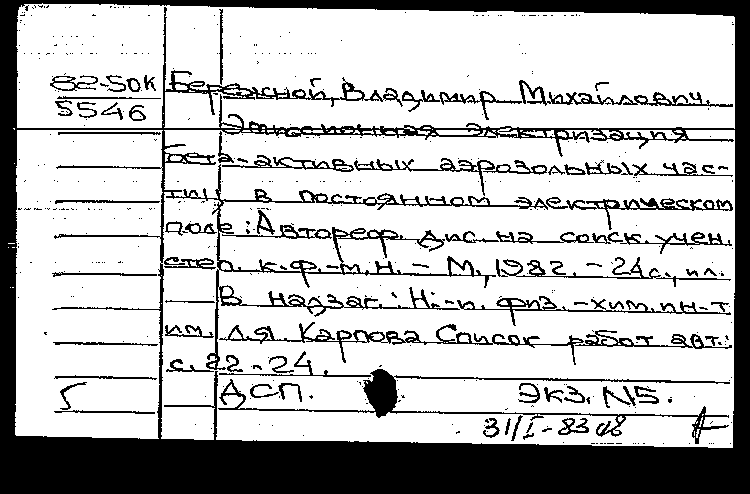 82-50К Бережной, Владимир Михайлович.
5546
Эмиссионная электризация
бета-активных аэрозольных час-
тиц в постоянном электрическом
поле: Автореф. дис. на соиск. учен.
степ. к.ф.-м.н. - М., 1982. - 24 с., ил.
В надзаг.: Н.-и. физ.-хим. ин-т
им. Л.Я. Карпова. Список работ авт.:
с. 22-24.
5 ДСП. Экз. №5.
31/I-83